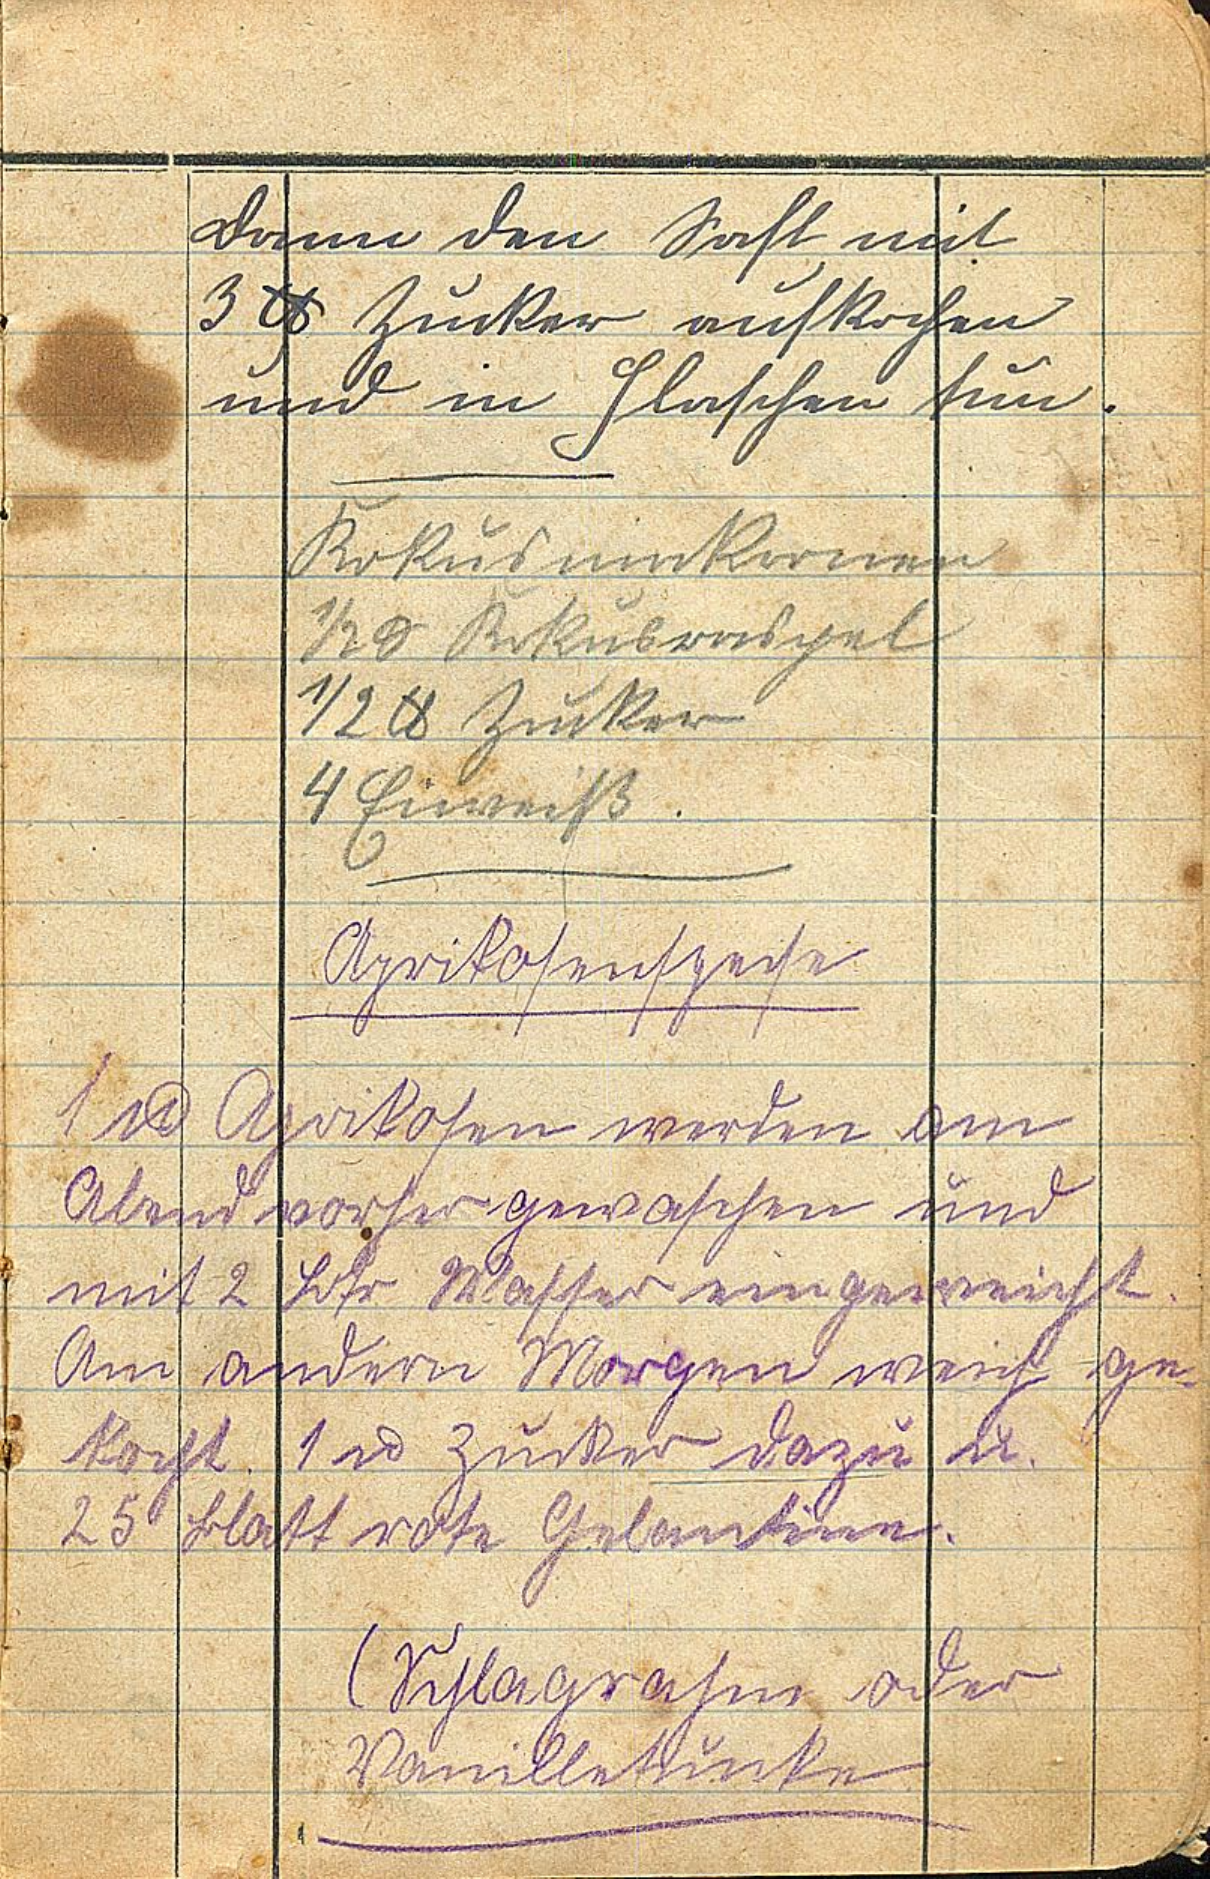 Dann den Saft mit
3 ℔ Zucker aufkochen
und in Flaschen tun.
Kokusmakronen
1/2 ℔ Kokusraspel
1/2 ℔ Zucker
4 Eiweiß.
Aprikosenspeise
1 ℔ Aprikosen werden am
Abend vorher gewaschen und
mit 2 Ltr Wasser eingeweicht.
Am andern Morgen weich ge-
kocht. 1 ℔ Zucker dazu u.
25 Blatt rote Gelantine.
(Schlagrahm oder
Vanilletunke